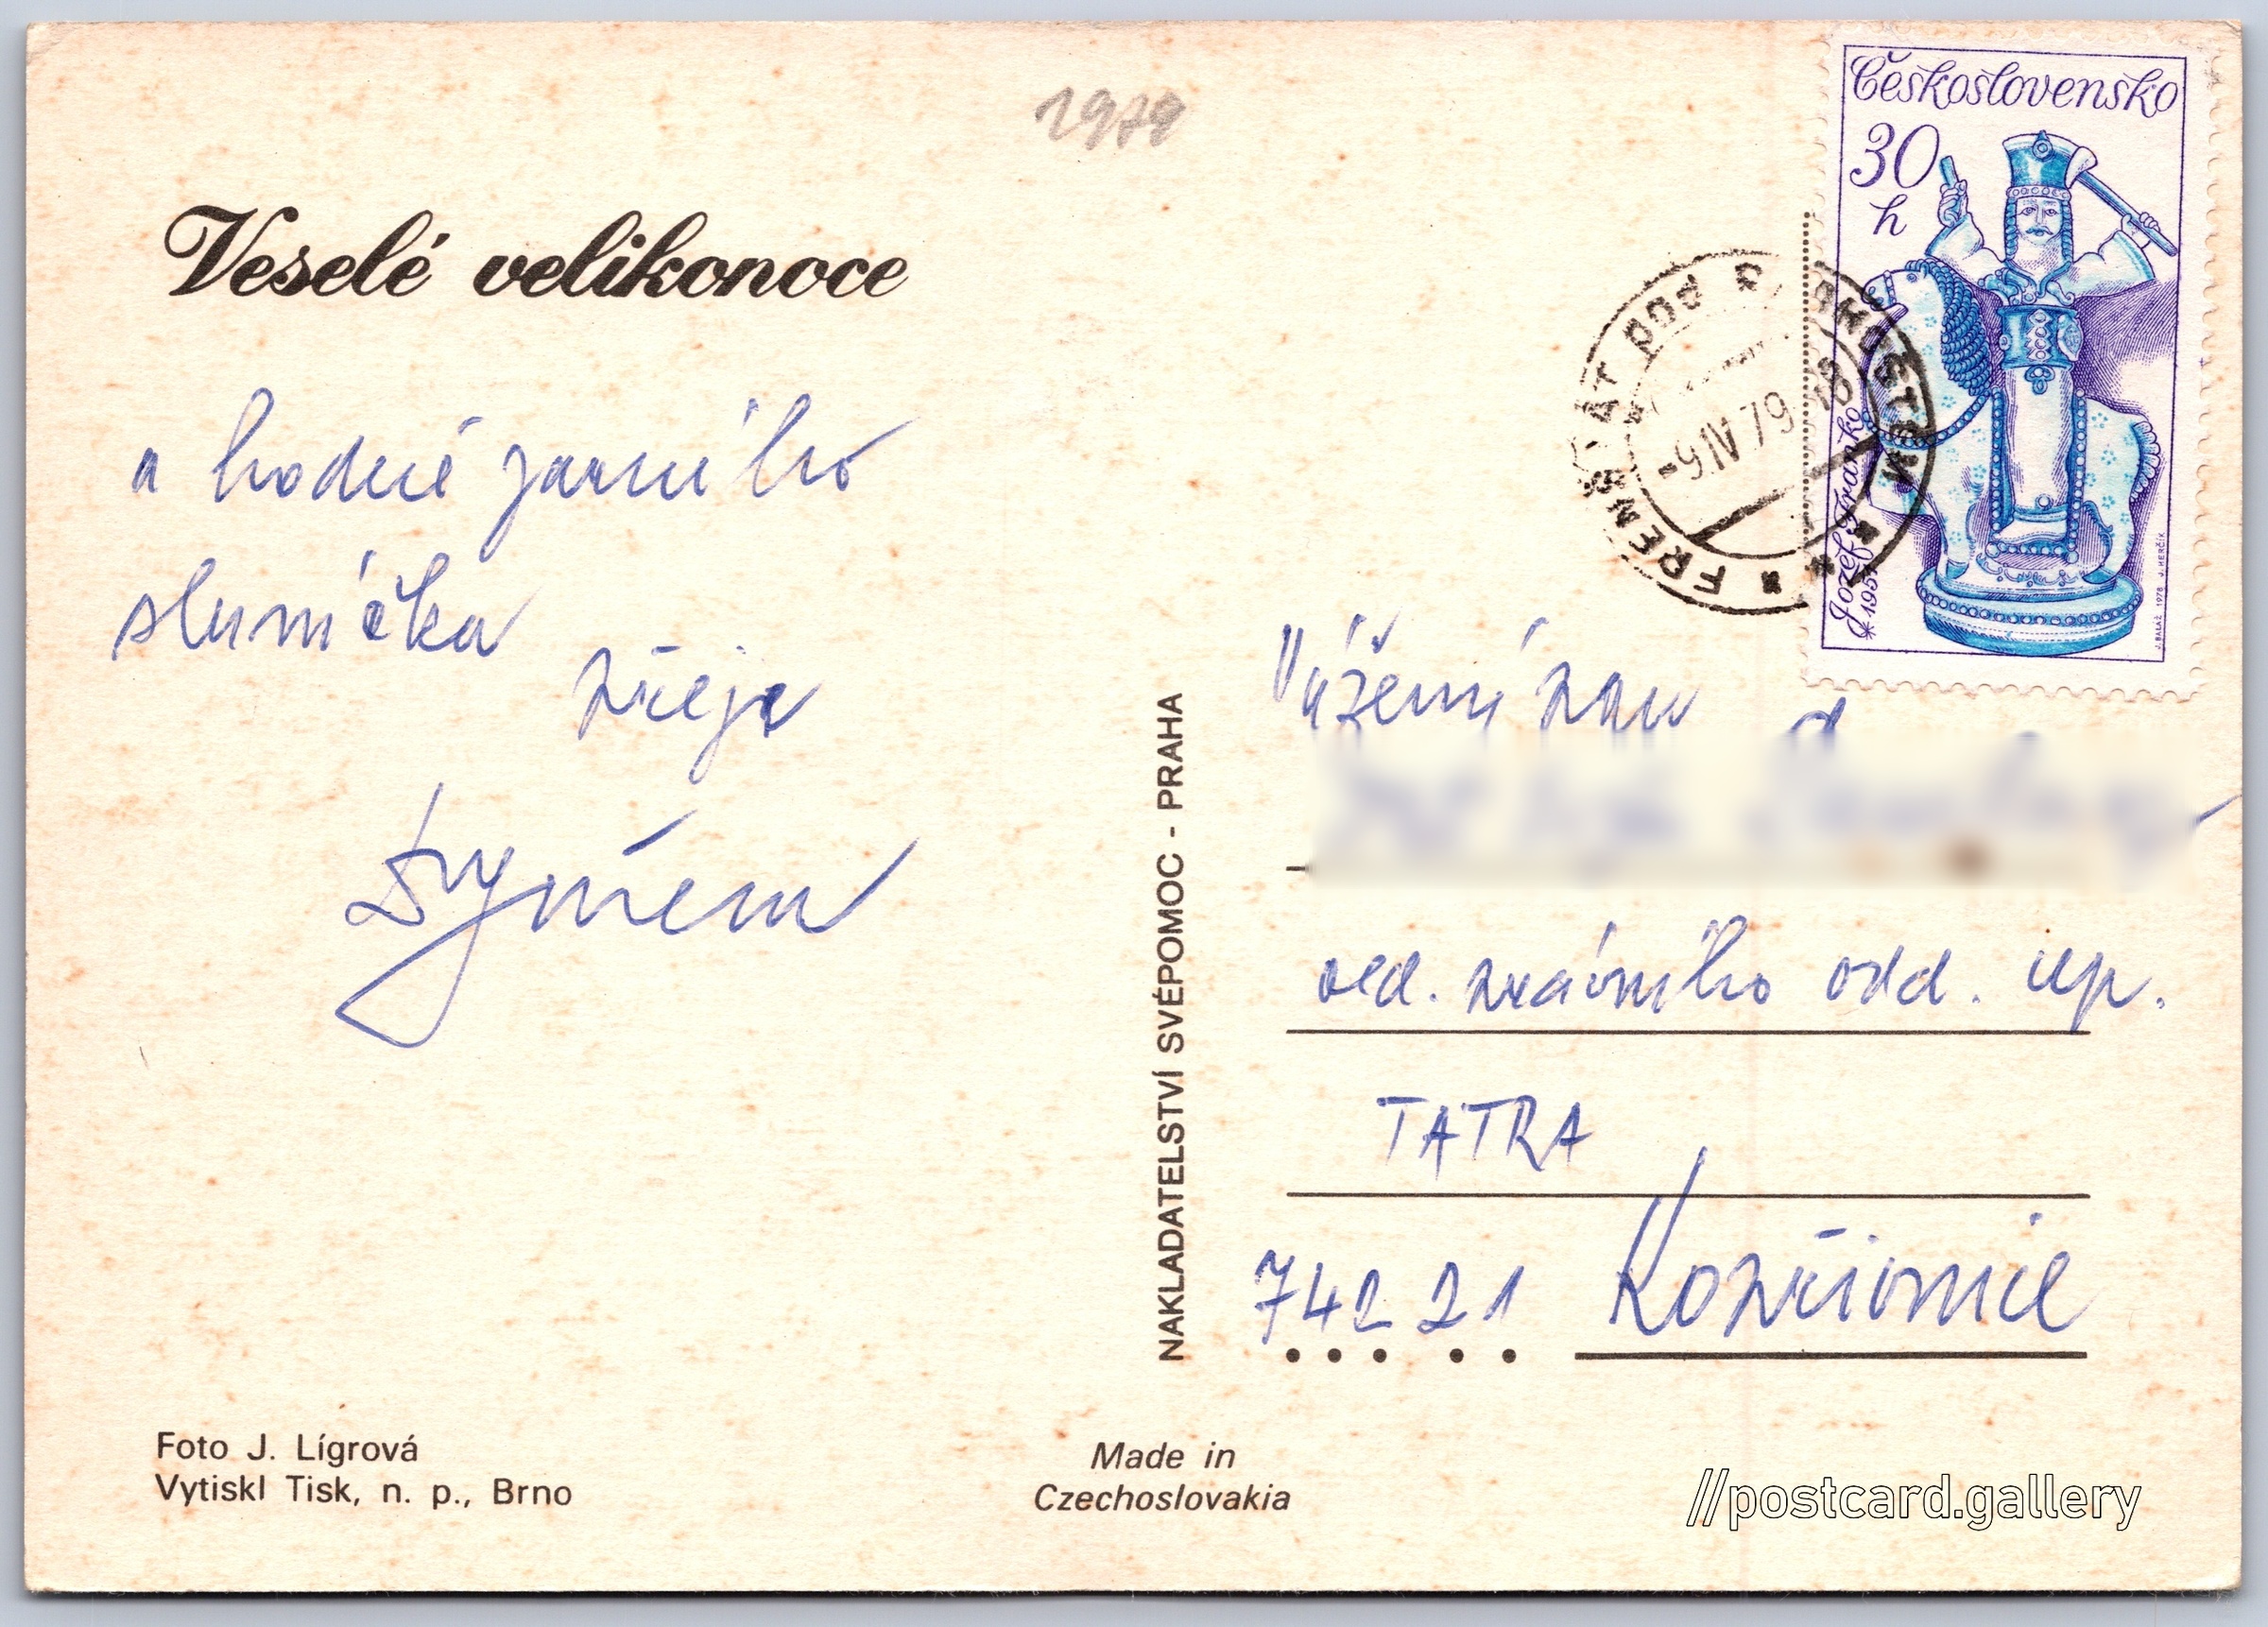 1979
Československo
30
h
Jozef Franko
*1957
J. BALÁŽ 1978 J. HERČÍK
FRENŠTÁT pod RADHOŠTĚM
-9.IV.79-18
Veselé velikonoce
a hodně jarního
sluníčka
přeje
Vážený pan
ved. právního odd. np.
TATRA
742 21 Kopřivnice
NAKLADATELSTVÍ SVÉPOMOC - PRAHA
Foto J. Lígrová
Vytiskl Tisk, n. p., Brno
Made in
Czechoslovakia
//postcard.gallery